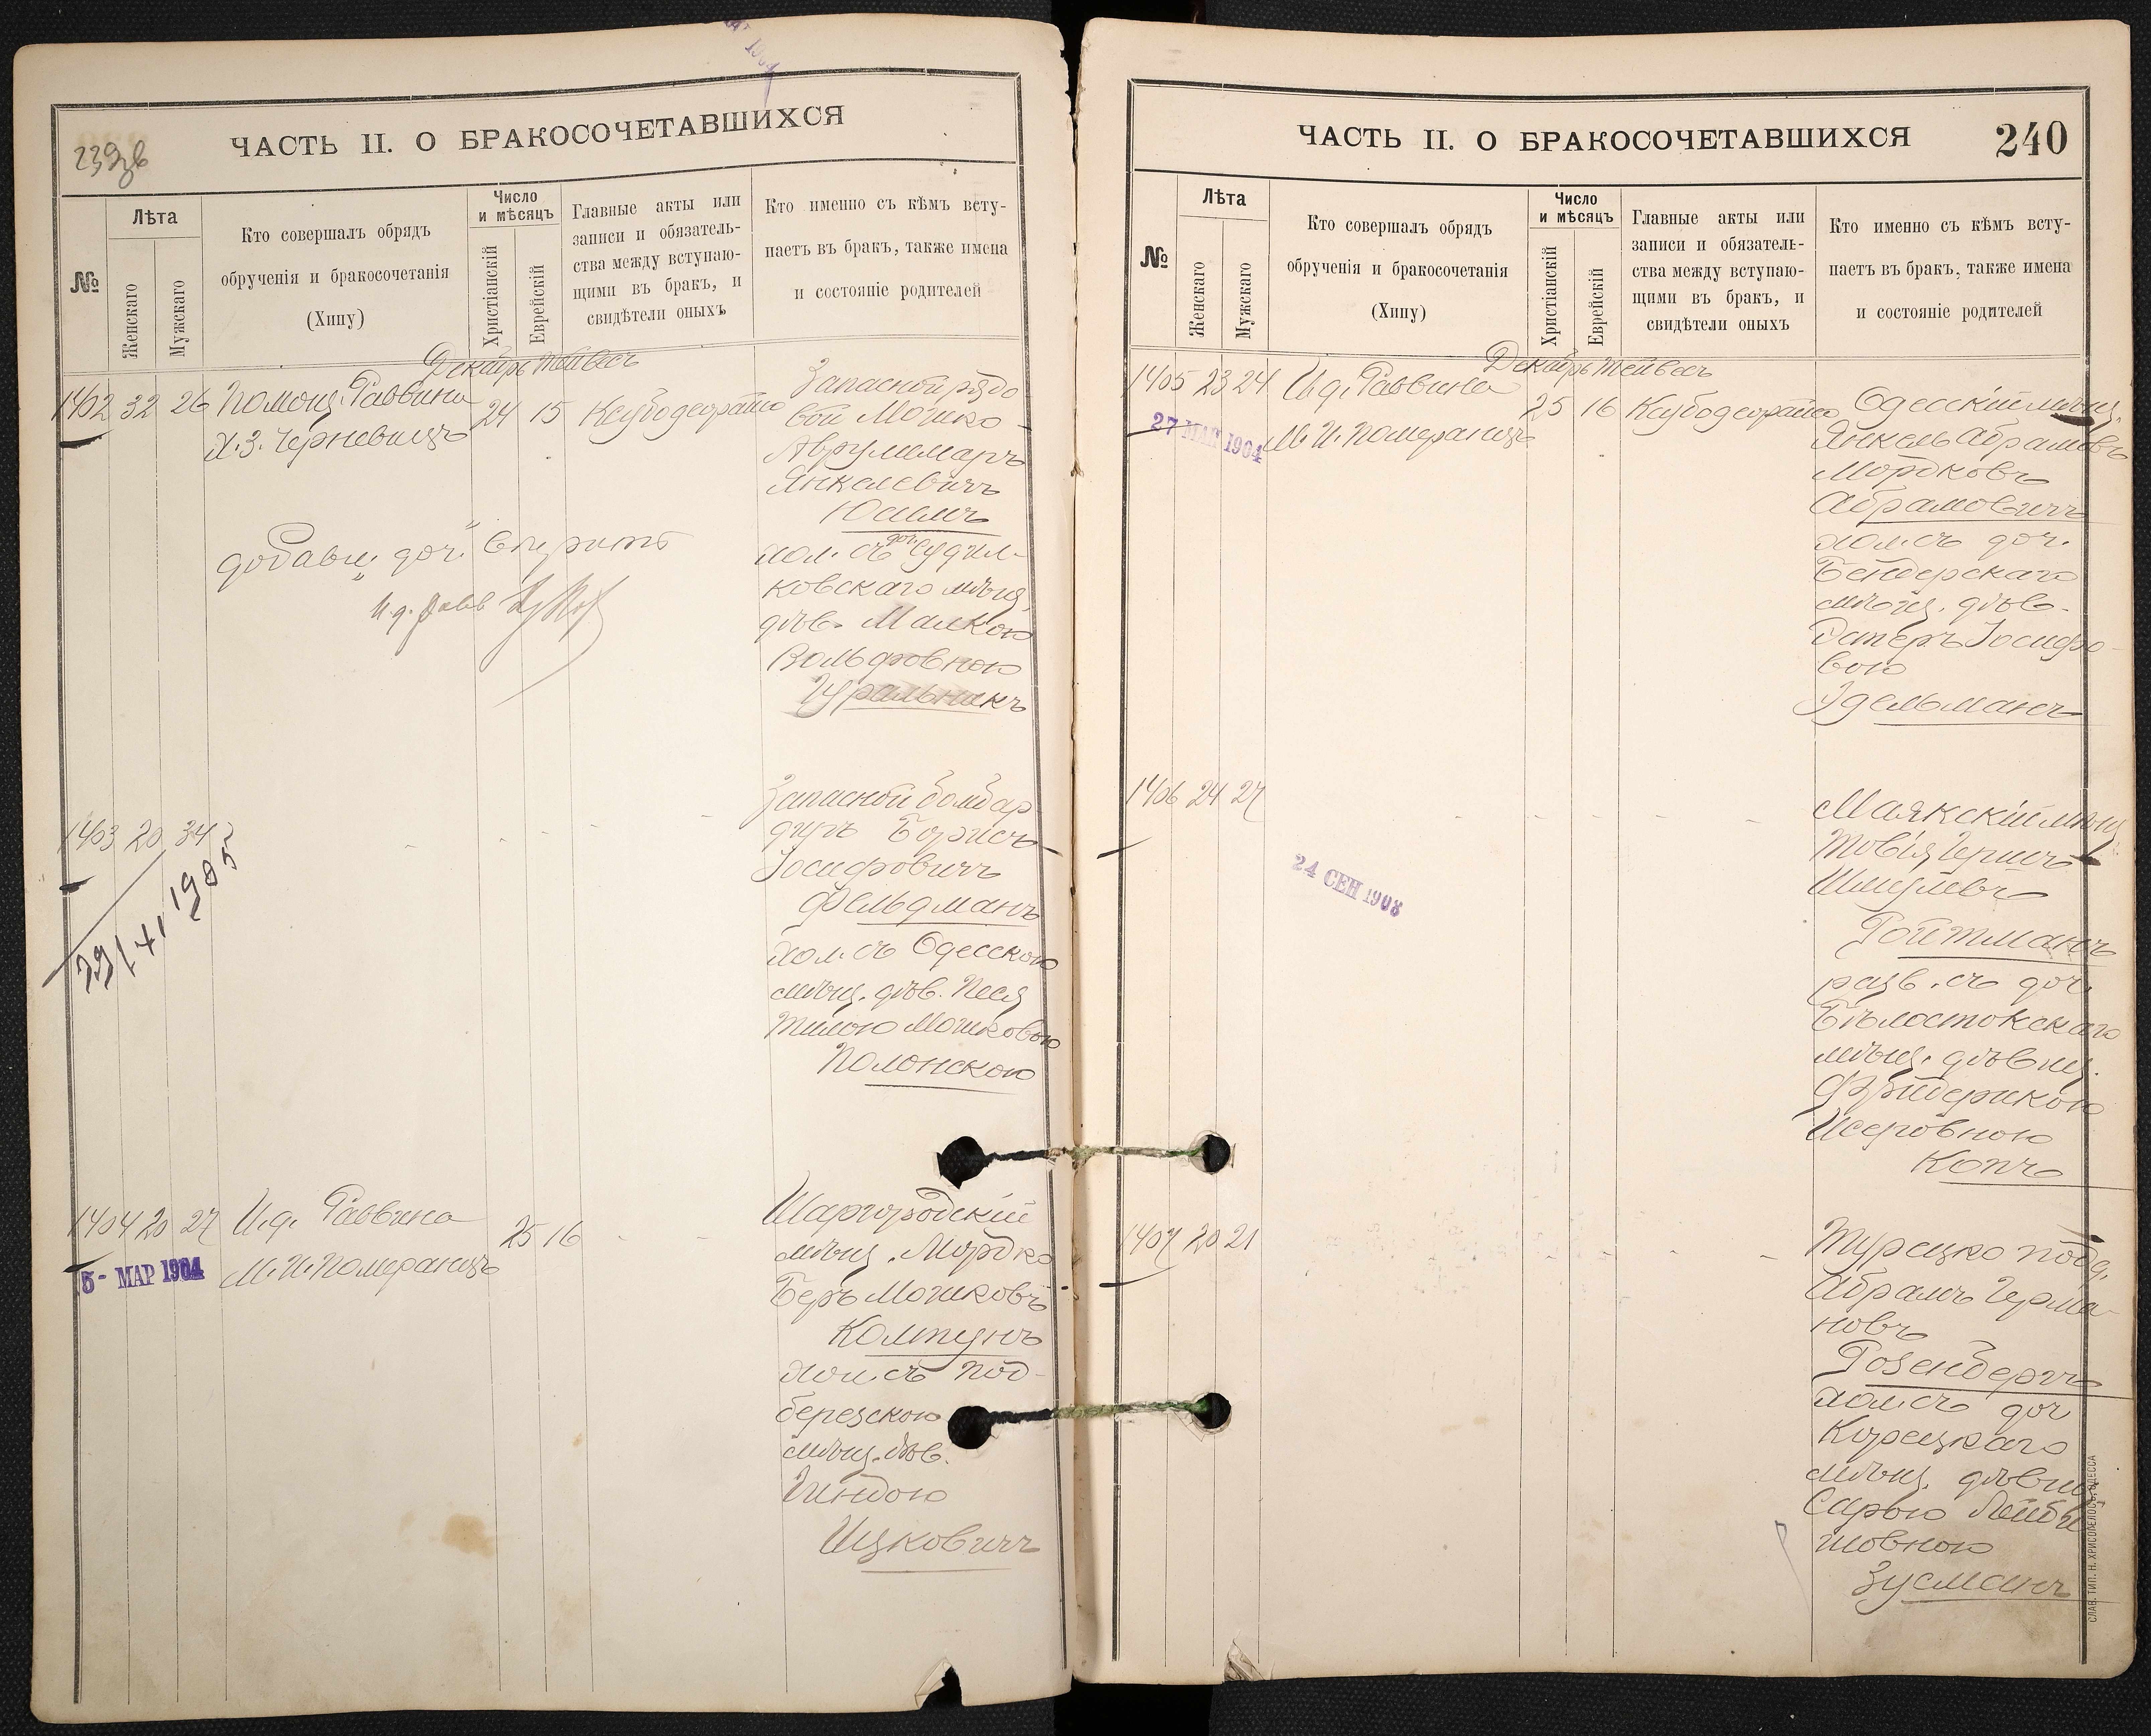 ЧАСТЬ II. О БРАКОСОЧЕТАВШИХСЯ
239об
№
Лѣта
Женскаго
Мужскаго
Кто совершалъ обрядъ
обрученія и бракосочетанія
(Хипу)
Число
и мѣсяцъ
Христіанскій
Еврейскій
Главные акты или
записи и обязатель-
ства между вступаю-
щими въ бракъ, и
свидѣтели оныхъ
Кто именно съ кѣмъ всту-
паетъ въ бракъ, также имена
и состояніе родителей
Декабрь Тейвесъ
1402 32 26 Помощ. Раввина 24 15
Х. З. Черневицъ
Запасной рядо
вой Мошко-
Авруммаръ
Янкелевичъ
Юсимъ
хол. съ доч. Судил-
ковскаго мѣщ.
дѣв. Малкою
Вольфовною
Гуральникъ
добавл. "доч." вѣрить
И. д. Равв
1403 20 34
29/XI 1905
Запасной бомбар
диръ Борисъ
Іосифовичъ
Фельдманъ
хол. съ Одесскою
мѣщ. дѣв. Песя
Тилою Мошковою
Полонскою
1404 20 27 И. д. Раввина 25 16
М. И. Померанцъ
5- МАР 1904
Шаргородскій
мѣщ. Мордко
Беръ Мошковъ
Колтунъ
хол. съ Под-
березскою
мѣщ. дѣв.
Гиндою
Ицковичъ
ЧАСТЬ II. О БРАКОСОЧЕТАВШИХСЯ
240
№
Лѣта
Женскаго
Мужскаго
Кто совершалъ обрядъ
обрученія и бракосочетанія
(Хипу)
Число
и мѣсяцъ
Христіанскій
Еврейскій
Главные акты или
записи и обязатель-
ства между вступаю-
щими въ бракъ, и
свидѣтели оныхъ
Кто именно съ кѣмъ всту-
паетъ въ бракъ, также имена
и состояніе родителей
Декабрь Тейвесъ
1405 23 24 И. д. Раввина 25 16
М. И. Померанцъ
27 МАР 1904
Одесскій мѣщ.
Янкель Абрамовъ
Мордковъ
Абрамовичъ
хол. съ доч.
Бендерскаго
мѣщ. дѣв.
Эстеръ Іосифо-
вою
Эдельманъ
1406 24 27
24 СЕН 1908
Маякскій мѣщ.
Товія Гершъ
Шмулевъ
Ройтманъ
разв. съ доч.
Бѣлостокскаго
мѣщ. дѣвиц.
Фридерикою
Исеровною
Копъ
1407 20 21
Турецко подд.
Абрамъ Герма-
новъ
Розенбергъ
хол. съ доч
Корецкаго
мѣщ. дѣвиц.
Сарою Лейби
шовною
Зусманъ
СЛАВ. ТИП. Н. ХРИСОГЕЛОСЪ, ОДЕССА